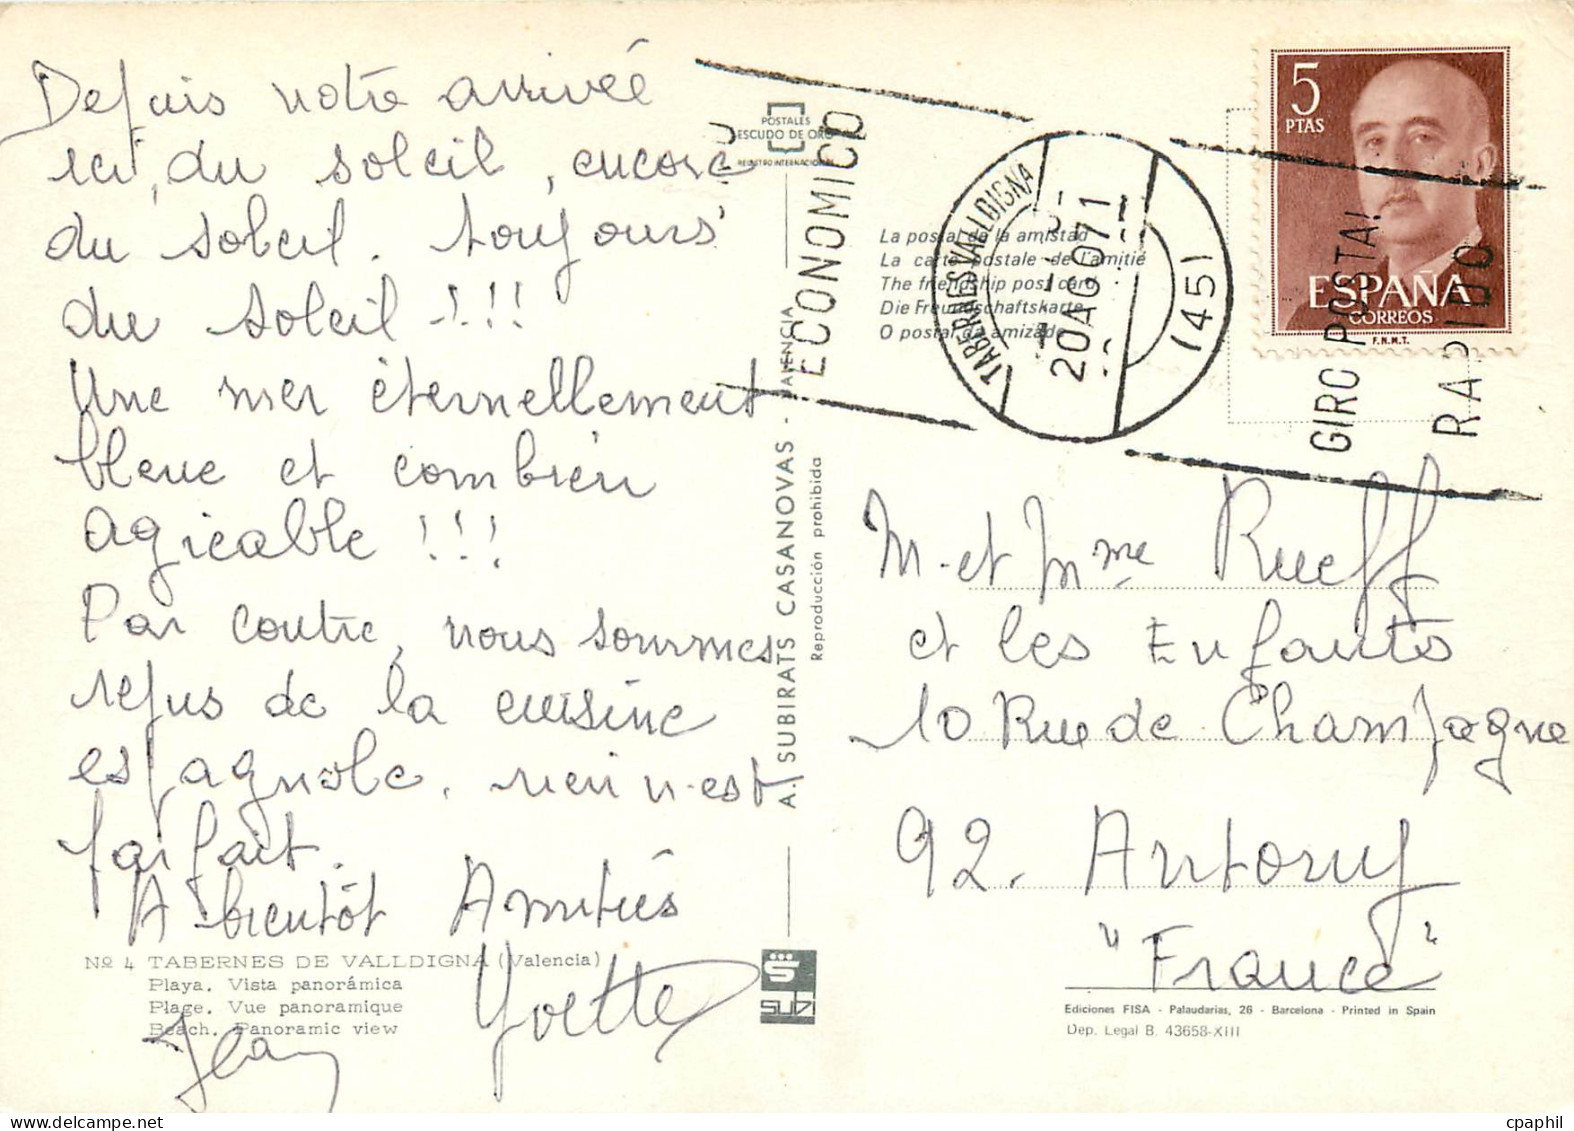 Depuis notre arrivée
ici, du soleil, encore
du soleil. toujours
du soleil !!!
Une mer éternellement
bleue et combien
agréable !!!
Par contre, nous sommes
refus de la cuisine
espagnole. rien n'est
parfait.
A bientôt Amitiés
Yvette
Jean
Nº 4 TABERNES DE VALLDIGNA (Valencia)
Playa. Vista panorámica
Plage. Vue panoramique
Beach. Panoramic view
POSTALES
ESCUDO DE ORO
REGISTRO INTERNACIONAL
A. SUBIRATS CASANOVAS - VALENCIA
Reproducción prohibida
SUBI
La postal de la amistad
La carte postale de l'amitié
The friendship post card
Die Freundschaftskarte
O postal da amizade
ECONOMICO
TABERNES VALLDIGNA
20AGO71
(451
GIRO POSTAL!
RAPIDO
5
PTAS
ESPAÑA
CORREOS
F.N.M.T.
M. et Mme Rueff
et les Enfants
10 Rue de Champagne
92. Antony
"France"
Ediciones FISA - Palaudarias, 26 - Barcelona - Printed in Spain
Dep. Legal B. 43658-XIII
cpaphil